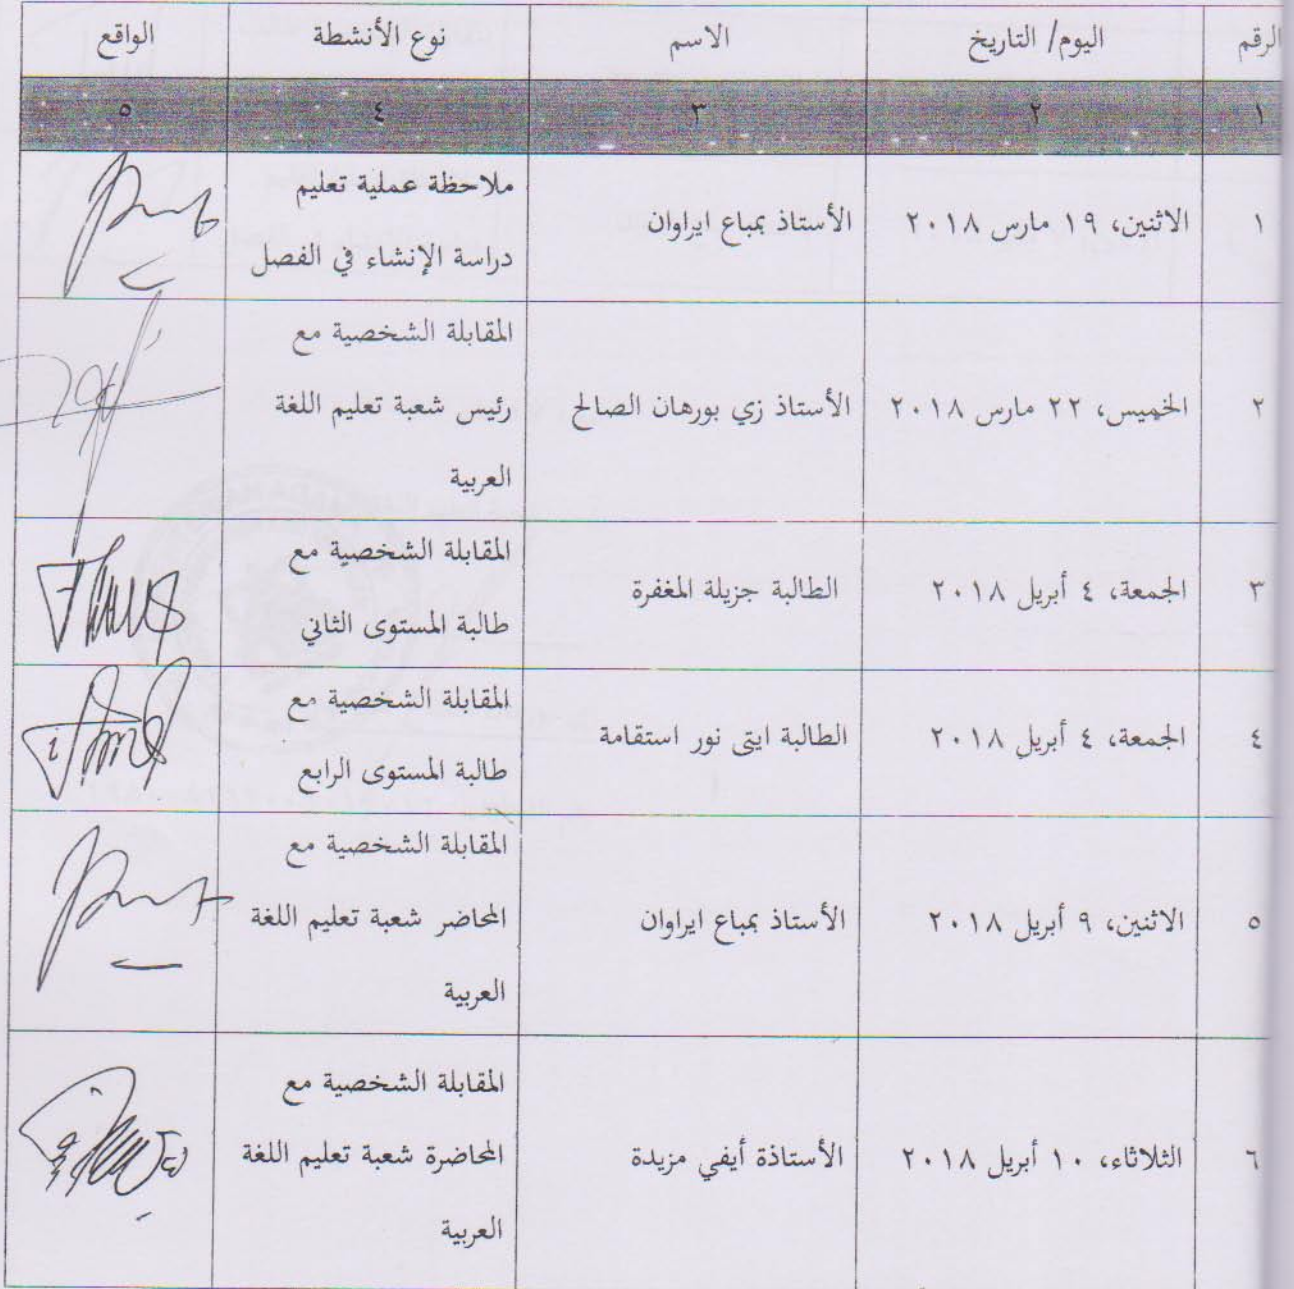 الرقم اليوم/ التاريخ الاسم نوع الأنشطة الواقع
١ ٢ ٣ ٤ ٥
١ الاثنين، ١٩ مارس ٢٠١٨ الأستاذ بمباع ايراوان ملاحظة عملية تعليم
دراسة الإنشاء في الفصل
٢ الخميس، ٢٢ مارس ٢٠١٨ الأستاذ زي بورهان الصالح المقابلة الشخصية مع
رئيس شعبة تعليم اللغة
العربية
٣ الجمعة، ٤ أبريل ٢٠١٨ الطالبة جزيلة المغفرة المقابلة الشخصية مع
طالبة المستوى الثاني
٤ الجمعة، ٤ أبريل ٢٠١٨ الطالبة ايتى نور استقامة المقابلة الشخصية مع
طالبة المستوى الرابع
٥ الاثنين، ٩ أبريل ٢٠١٨ الأستاذ بمباع ايراوان المقابلة الشخصية مع
المحاضر شعبة تعليم اللغة
العربية
٦ الثلاثاء، ١٠ أبريل ٢٠١٨ الأستاذة أيفي مزيدة المقابلة الشخصية مع
المحاضرة شعبة تعليم اللغة
العربية